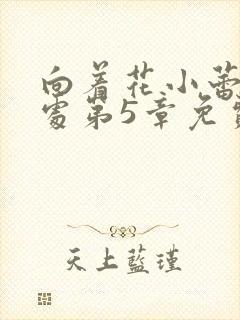 向着花小蕾
处第5章免
天上藍瑾